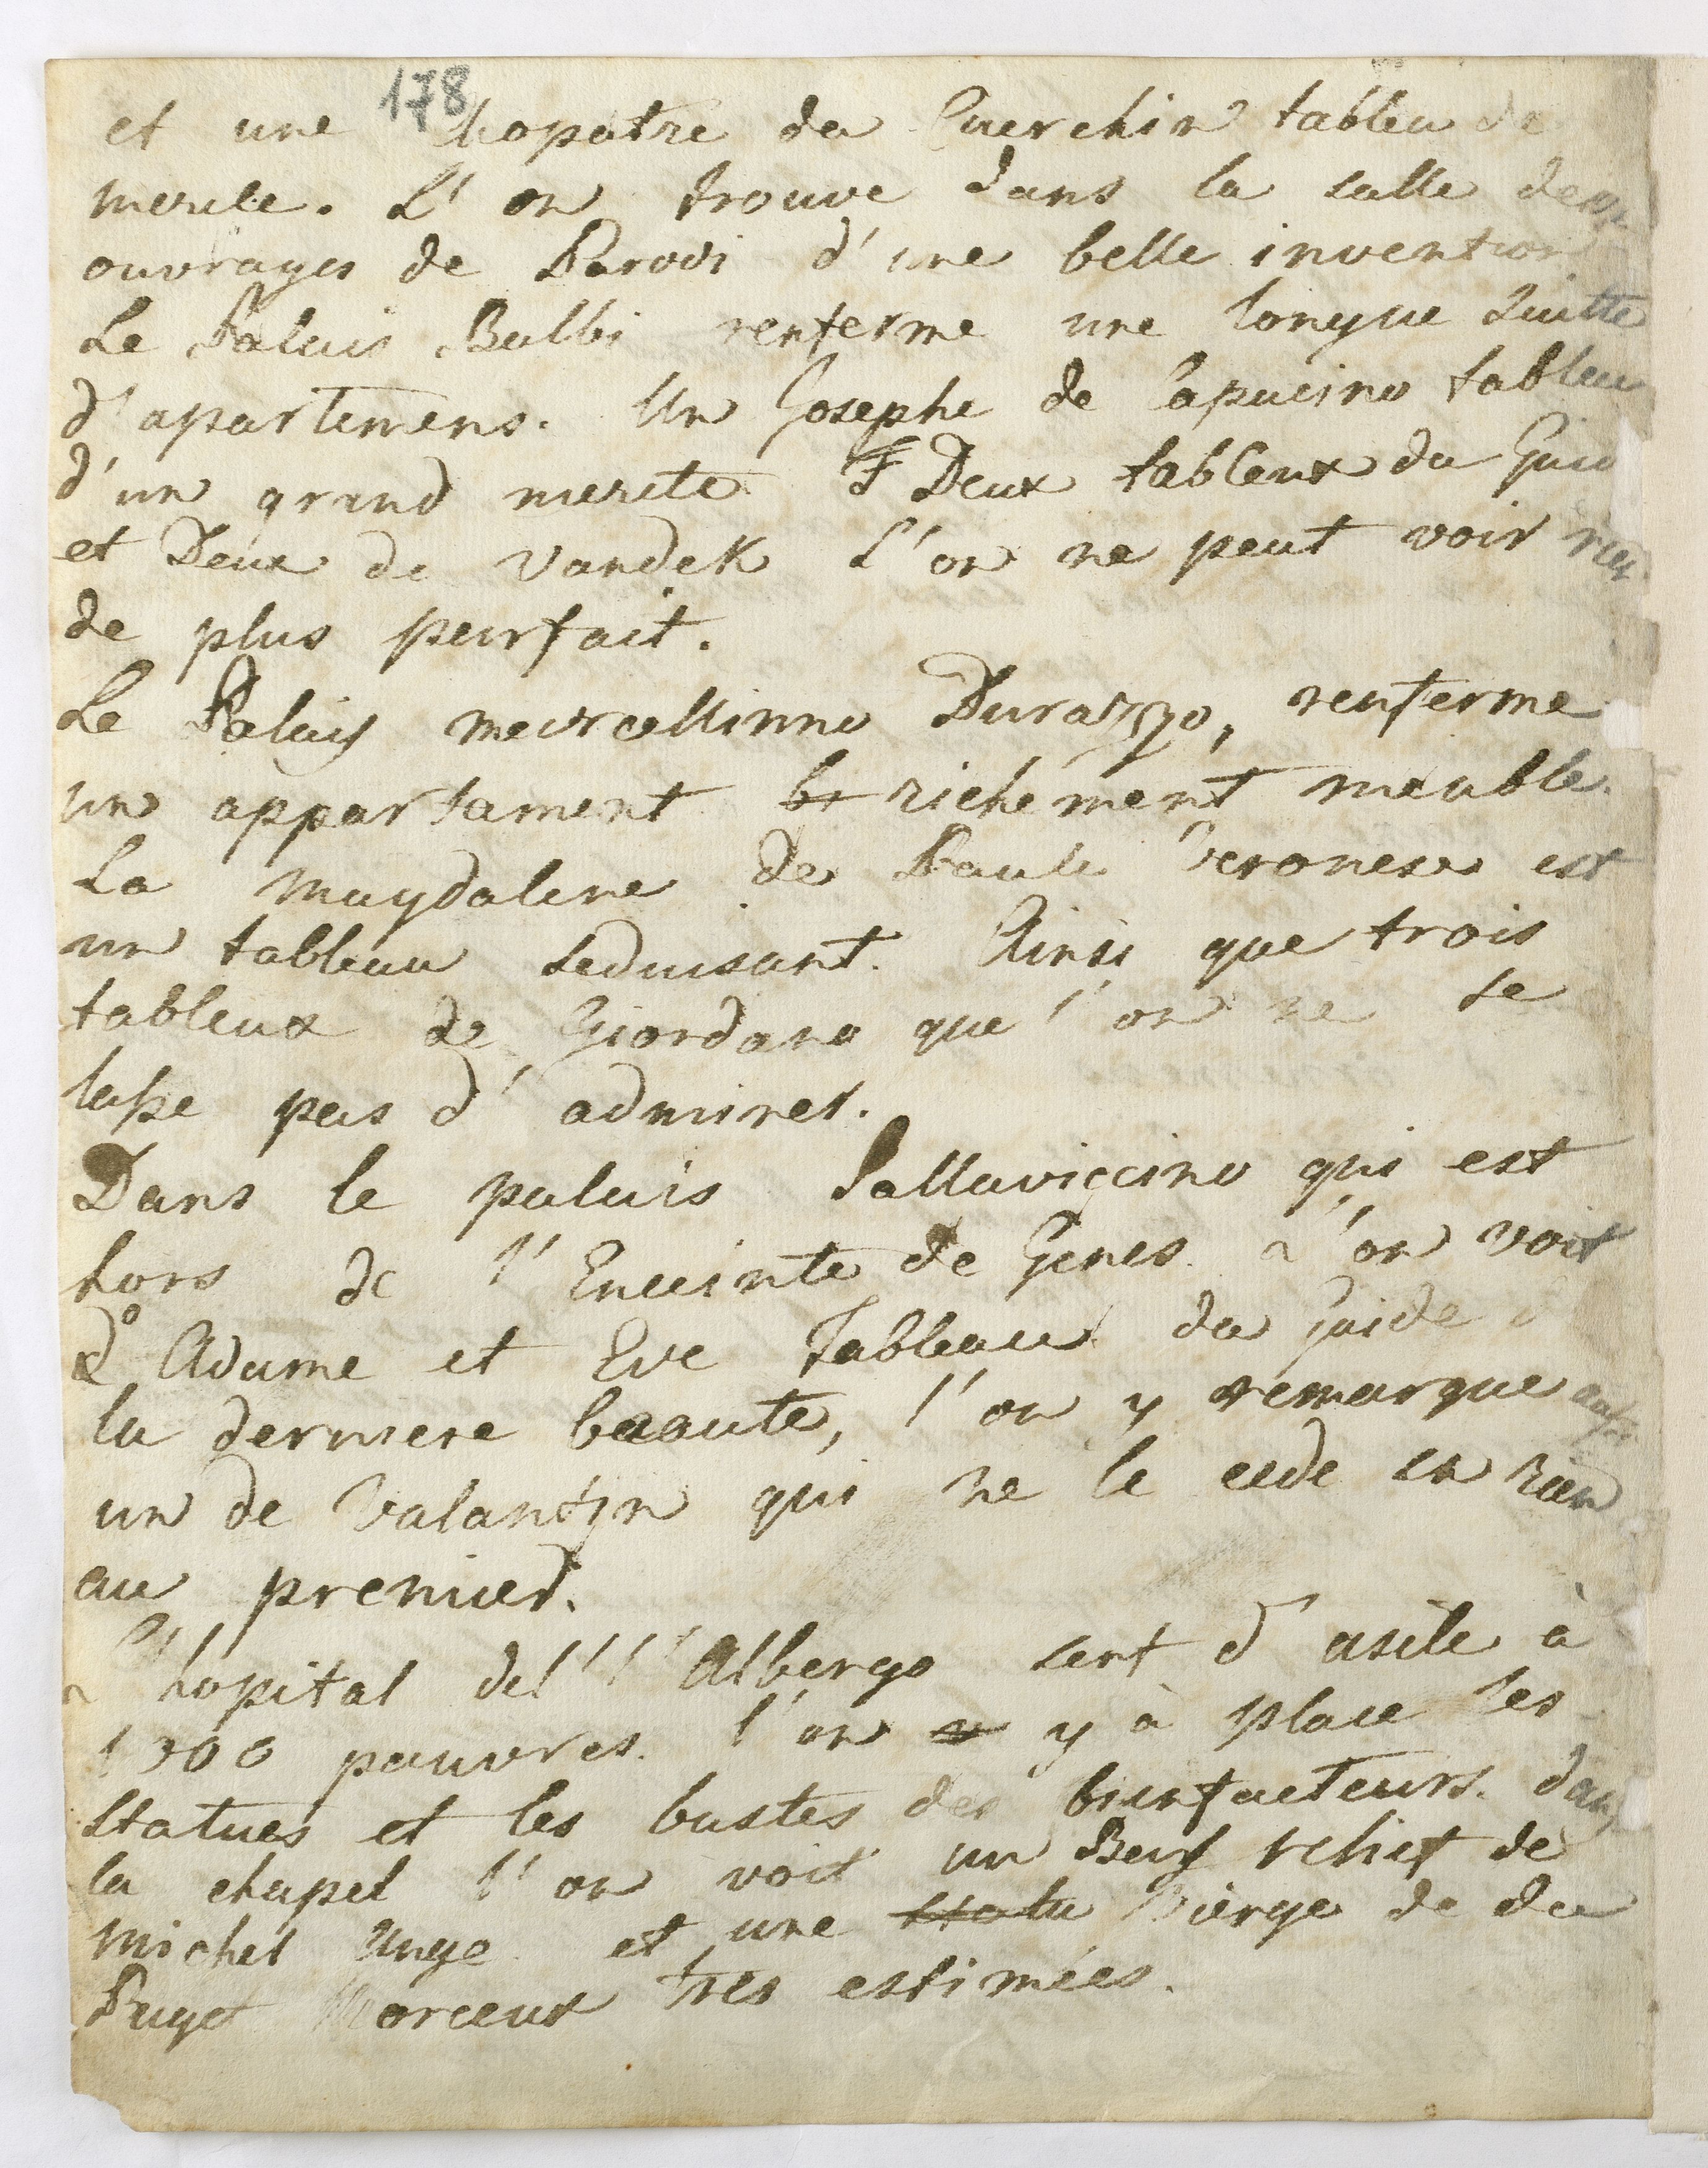 178
et une Cleopatre du Guerchin tableu de
merite. L'on trouve dans la salle deux
ouvrages de Parodi d'une belle invention
Le Palais Balbi renferme une longue suitte
d'apartemens. Un Josephe de Capucino tableu
d'un grand merite Deux tableux du Guid
et Deux de Vandek L'on ne peut voir rien
de plus parfait.
Le Palais marcellinno Durazzo, renferme
un appartament richement meuble.
La Magdalene de Paule Veronese est
un tableau seduisant. Ainsi que trois
tableux de Giordano que l'on ne se
lasse pas d'admirer.
Dans le palais Pallaviccino qui est
hors de l'Enceinte de Genes. l'on voit
d° Adame et Eve Tableau du Guide d
la derniere beaute, l'on y remarque aussi
un de Valantyn qui ne le cede en rien
au premier.
L'hopital del l'Albergo sert d'asile à
1300 pauvres. l'on y à place les
statues et les bustes des bienfacteurs. dans
la chapel l'on voit un Bas relief de
Michel Ange et une Vierge de du
Puget Morceux tres estimées.